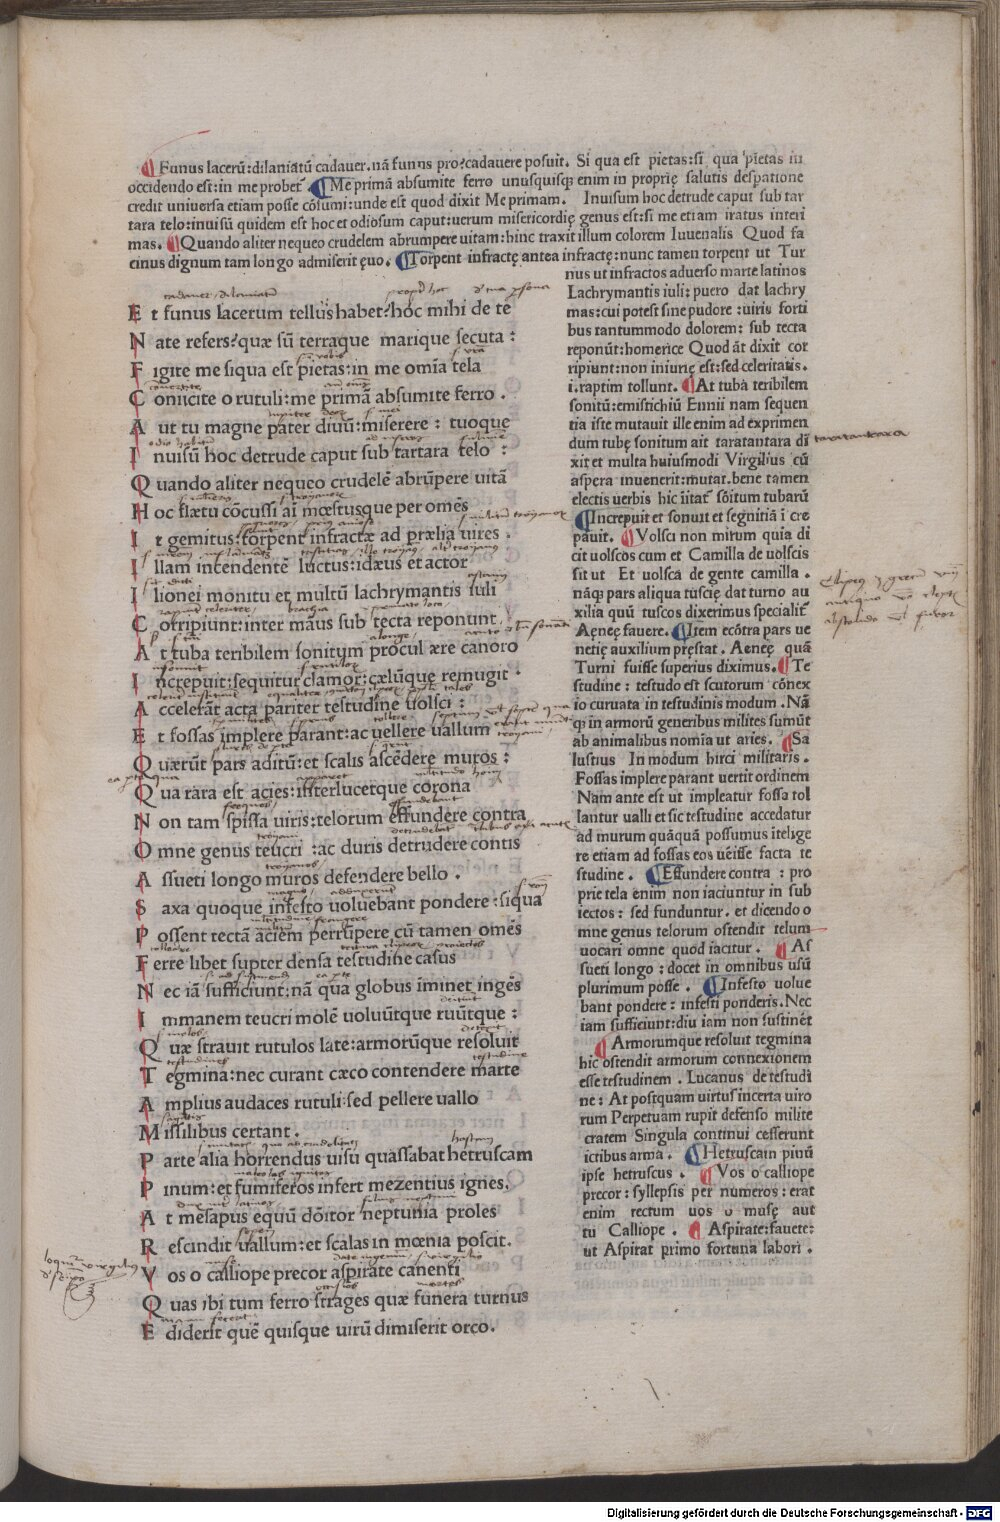 ¶Funus lacerū:dilaniatū cadauer.nā funus pro?cadauere posuit. Si qua est pietas:si qua pietas in
occidendo est:in me probet. ¶Me primā absumite ferro unusquisq; enim in proprię salutis despatione
credit uniuersa etiam posse cōsumi:unde est quod dixit Me primam. Inuisum hoc detrude caput sub tar
tara telo:inuisū quidem est hoc et odiosum caput:uerum misericordię genus est:si me etiam iratus interi
mas. ¶Quando aliter nequeo crudelem abrumpere uitam:hinc traxit illum colorem Iuuenalis Quod fa
cinus dignum tam longo admiserit ęuo. ¶Torpent infractę antea infractę:nunc tamen torpent ut Tur
E t funus lacerum tellus habet?hoc mihi de te
N ate refers?quæ sū terraque marique secuta :
F igite me siqua est pietas:in me omīa tela
C oniicite o rutuli:me primā absumite ferro .
A ut tu magne pater diuū:miserere : tuoque
I nuisū hoc detrude caput sub tartara telo :
Q uando aliter nequeo crudelē abrūpere uitā
H oc flætu cōcussi ai mœstusque per omēs
I t gemitus:torpent infractæ ad prælia uires .
I llam incendentē luctus:idæus et actor
I lionei monitu et multū lachrymantis iuli
C orripiunt:inter māus sub tecta reponunt .
A t tuba teribilem sonitum procul ære canoro
I ncrepuit:sequitur clamor:cælūque remugit .
A ccelerāt acta pariter testudine uolsci :
E t fossas implere parant:ac uellere uallum
Q uærūt pars aditū:et scalis ascēdere muros :
Q ua rara est acies:interlucetque corona
N on tam spissa uiris:telorum effundere contra
O mne genus teucri :ac duris detrudere contis
A ssueti longo muros defendere bello .
S axa quoque infesto uoluebant pondere :siqua
P ossent tectā aciem perrūpere cū tamen omēs
F erre libet supter densa testudine casus
N ec iā sufficiunt:nā qua globus iminet ingēs
I mmanem teucri molē uoluūtque ruūtque :
Q uæ strauit rutulos late:armorūque resoluit
T egmina:nec curant cæco contendere marte
A mplius audaces rutuli:sed pellere uallo
M issilibus certant .
P arte alia horrendus uisu quassabat hetruscam
P inum:et fumiferos infert mezentius ignes.
A t mesapus equū dōitor neptunia proles
R escindit uallum:et scalas in mœnia poscit.
V os o calliope precor aspirate canenti
Q uas ibi tum ferro strages quæ funera turnus
E diderit quē quisque uirū dimiserit orco.
nus ut infractos aduerso marte latinos
Lachrymantis iuli: puero dat lachry
mas:cui potest sine pudore :uiris forti
bus tantummodo dolorem: sub tecta
reponūt:homerice Quod āt dixit cor
ripiunt:non iniurię est:sed celeritatis.
i.raptim tollunt. ¶At tuba teribilem
sonitū:emistichiū Ennii nam sequen
tia iste mutauit ille enim ad exprimen
dum tubę sonitum ait taratantara di
xit et multa huiusmodi Virgilius cū
aspera inuenerit:mutat.bene tamen
electis uerbis hic iitat' sōitum tubarū
¶Increpuit et sonuit et segnitiā i cre
pauit. ¶Volsci non mirum quia di
cit uolscos cum et Camilla de uolscis
sit ut Et uolsca de gente camilla .
nāq; pars aliqua tuscię dat turno au
xilia quū tuscos dixerimus specialit'
Aeneę fauere. ¶Item ecōtra pars ue
netię auxilium pręstat. Aeneę quā
Turni fuisse superius diximus. ¶Te
studine : testudo est scutorum cōnex
io curuata in testudinis modum . Nā
q; in armorū generibus milites sumūt
ab animalibus nomīa ut aries. ¶Sa
lustius In modum hirci militaris .
Fossas implere parant uertit ordinem
Nam ante est ut impleatur fossa tol
lantur ualli et sic testudine accedatur
ad murum quāquā possumus itelige
re etiam ad fossas eos uēisse facta te
studine . ¶Effundere contra : pro
prie tela enim non iaciuntur in sub
iectos : sed funduntur. et dicendo o
mne genus telorum ostendit telum
uocari omne quod iacitur. ¶As
sueti longo : docet in omnibus usū
plurimum posse . ¶Infesto uolue
bant pondere : infesti ponderis.Nec
iam sufficiunt:diu iam non sustinēt
¶Armorumque resoluit tegmina
hic ostendit armorum connexionem
esse testudinem . Lucanus de testudi
ne : At postquam uirtus incerta uiro
rum Perpetuam rupit defenso milite
cratem Singula continui cesserunt
ictibus arma . ¶Hetruscam pinū
ipse hetruscus . ¶Vos o calliope
precor : syllepsis per numeros : erat
enim rectum uos o musę aut
tu Calliope . ¶Aspirate:fauete:
ut Aspirat primo fortuna labori .
taratantara
Digitalisierung gefördert durch die Deutsche Forschungsgemeinschaft - DFG